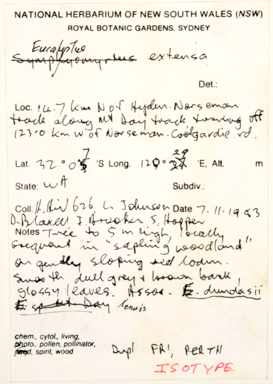 NATIONAL HERBARIUM OF NEW SOUTH WALES (NSW)
ROYAL BOTANIC GARDENS, SYDNEY
Eucalyptus
Symphyomyrtus extensa
Det.:
Loc. 14.7 km N of Hyden-Norseman
track along Mt Day track turning off
123.0 km W of Norseman-Coolgardie rd.
Lat. 32°07'S Long. 120° 29'E, Alt. m
State: WA Subdiv.:
Coll. L. Johnson Date 7.11.1983
D. Blaxell I Brooker S. Hopper
Notes Tree to 5 m high, locally
frequent in "sapling woodland"
on gently sloping red loam.
Smooth dull grey & brown bark,
glossy leaves. Assoc. E. dundasii
E.
chem., cytol, living,
photo., pollen, pollinator,
seed, spirit, wood
Dupl FRI, PERTH
ISOTYPE